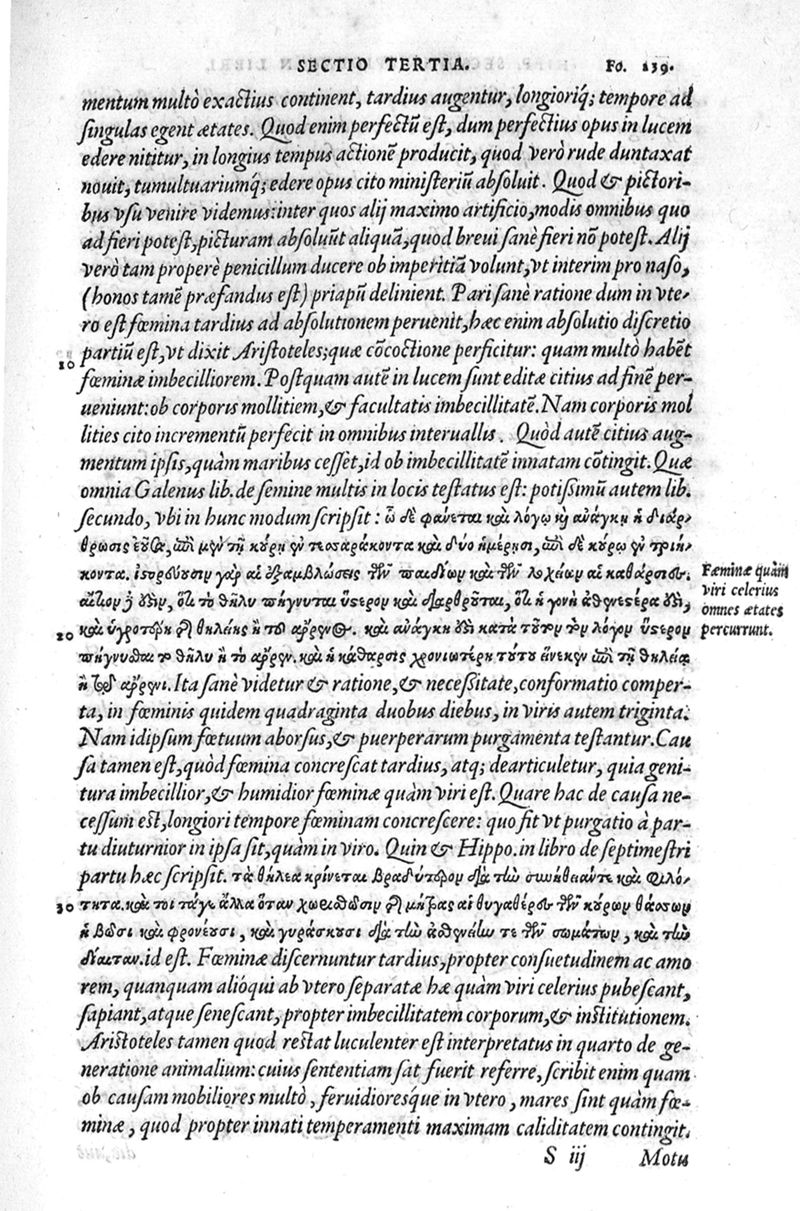 SECTIO TERTIA. Fo. 139.
mentum multò exactius continent, tardius augentur, longioriq; tempore ad
singulas egent ætates. Quod enim perfectũ est, dum perfectius opus in lucem
edere nititur, in longius tempus actionẽ producit, quod verò rude duntaxat
nouit, tumultuariumq; edere opus cito ministeriũ absoluit. Quod & pictori-
bus vsu venire videmus: inter quos alij maximo artificio, modis omnibus quo
ad fieri potest, picturam absoluũt aliquã, quod breui sanè fieri nõ potest. Alij
verò tam properè penicillum ducere ob imperitiã volunt, vt interim pro naso,
(honos tamẽ præfandus est) priapũ delinient. Pari sanè ratione dum in vte-
ro est fœmina tardius ad absolutionem peruenit, hæc enim absolutio discretio
partiũ est, vt dixit Aristoteles; quæ cõcoctione perficitur: quam multò habẽt
10
fœminæ imbecilliorem. Postquam autẽ in lucem sunt editæ citius ad finẽ per-
ueniunt: ob corporis mollitiem, & facultatis imbecillitatẽ. Nam corporis mol
lities cito incrementũ perfecit in omnibus interuallis. Quòd autẽ citius aug-
mentum ipsis, quàm maribus cesset, id ob imbecillitatẽ innatam cõtingit. Quæ
omnia Galenus lib. de semine multis in locis testatus est: potissimũ autem lib.
secundo, vbi in hunc modum scripsit: ὧ δὲ φαίνεται καὶ λόγῳ καὶ ἀνάγκῃ ἡ διάρ-
θρωσις ἐοῦσα, ἐπὶ μὲν τῇ κούρῃ ἐν τεσσαράκοντα καὶ δύο ἡμέρῃσι, ἐπὶ δὲ κούρῳ ἐν τριή-
κοντα. ἱστορέουσιν γὰρ αἱ ἐξαμβλώσεις τῶν παιδίων καὶ τῶν λοχείων αἱ καθάρσιες.
αἴτιον δὲ ἐστὶν, ὅτι τὸ θῆλυ πήγνυται ὕστερον καὶ διαρθροῦται, ὅτι ἡ γονὴ ἀσθενεστέρα ἐστὶ,
20
καὶ ὑγροτέρη τῆς θηλείης ἢ τοῦ ἄρρενος. καὶ ἀνάγκη ἐστὶ κατὰ τοῦτον τὸν λόγον ὕστερον
πήγνυσθαι τὸ θῆλυ ἢ τὸ ἄρρεν. καὶ ἡ κάθαρσις χρονιωτέρη τούτου εἵνεκεν ἐπὶ τῇ θηλείᾳ
ἢ τῷ ἄρρενι. Ita sanè videtur & ratione, & necessitate, conformatio comper-
ta, in fœminis quidem quadraginta duobus diebus, in viris autem triginta.
Nam idipsum fœtuum aborsus, & puerperarum purgamenta testantur. Cau
sa tamen est, quòd fœmina concrescat tardius, atq; dearticuletur, quia geni-
tura imbecillior, & humidior fœminæ quàm viri est. Quare hac de causa ne-
cessum est, longiori tempore fœminam concrescere: quo fit vt purgatio à par-
tu diuturnior in ipsa sit, quàm in viro. Quin & Hippo. in libro de septimestri
partu hæc scripsit. τὰ θήλεα κρίνεται βραδύτερον διὰ τὴν συνήθειάν τε καὶ φιλό-
30
τητα. καὶ τοι τάγε ἄλλα ὅταν χωρισθῶσιν τῆς μήτρας αἱ θυγατέρες τῶν κούρων θᾶσσον
ἡβῶσι καὶ φρονέουσι, καὶ γηράσκουσι διὰ τὴν ἀσθενείην τε τῶν σωμάτων, καὶ τὴν
δίαιταν. id est. Fœminæ discernuntur tardius, propter consuetudinem ac amo
rem, quanquam alióqui ab vtero separatæ hæ quàm viri celerius pubescant,
sapiant, atque senescant, propter imbecillitatem corporum, & institutionem.
Aristoteles tamen quod restat luculenter est interpretatus in quarto de ge-
neratione animalium: cuius sententiam sat fuerit referre, scribit enim quam
ob causam mobiliores multò, feruidioresque in vtero, mares sint quàm fœ-
minæ, quod propter innati temperamenti maximam caliditatem contingit.
S iij Motu
Fæminæ quàm
viri celerius
omnes ætates
percurrunt.